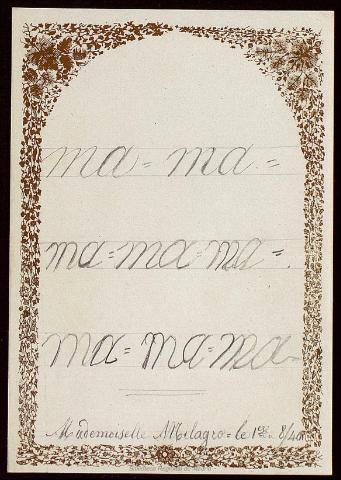 ma = ma =
ma = ma = ma =.
ma = ma = ma
Mademoiselle Milagro = le 1